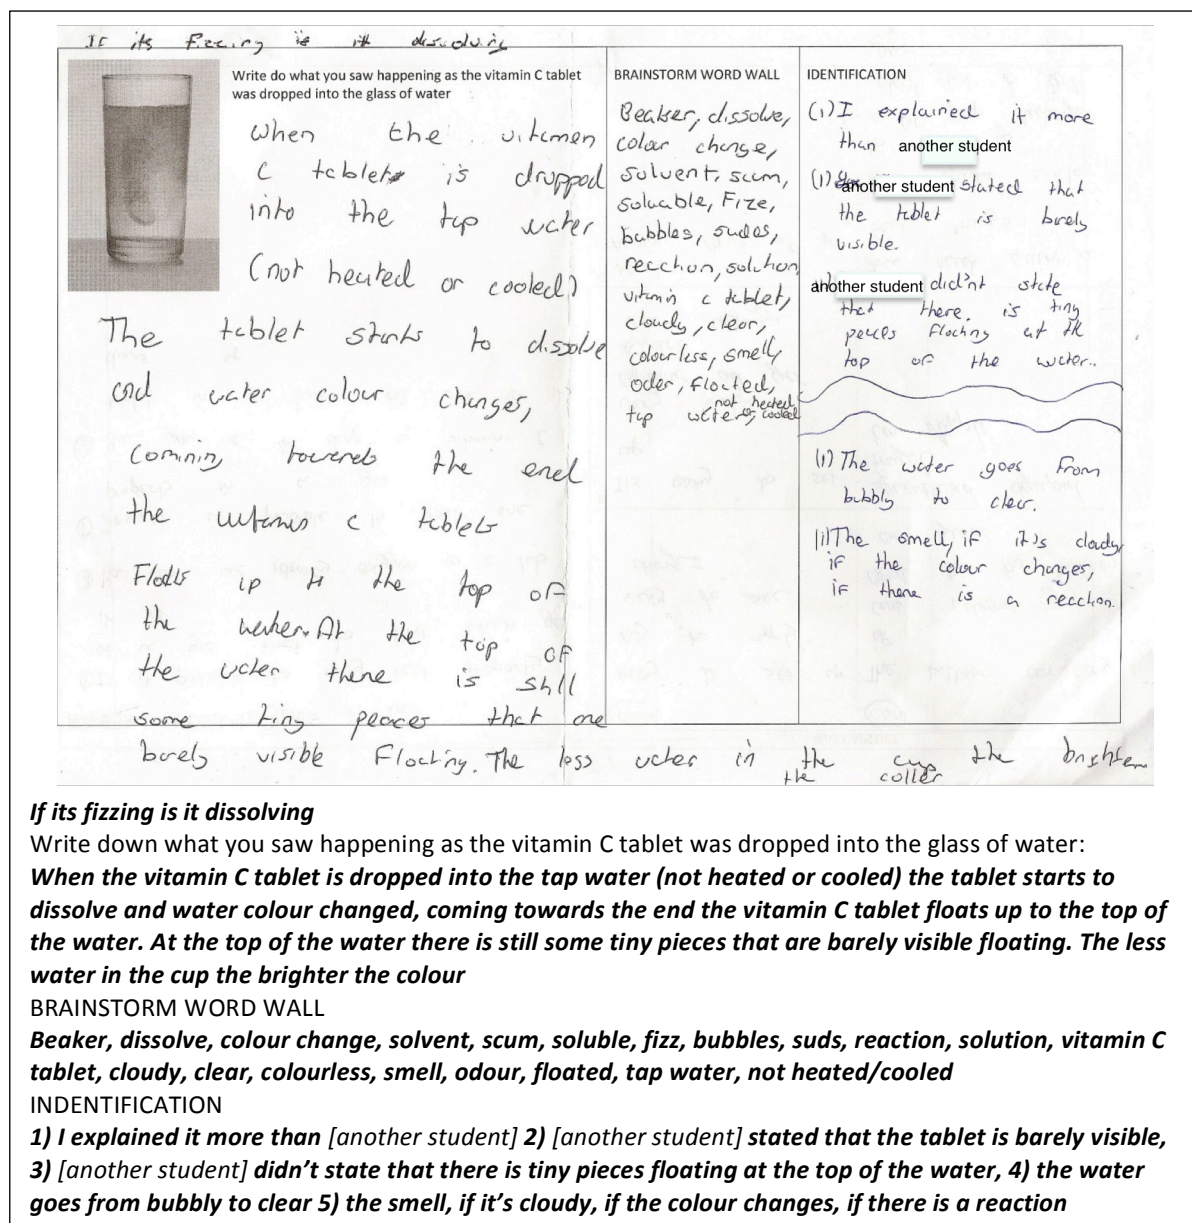 If its fizzing is it dissolving
Write do what you saw happening as the vitamin C tablet
was dropped into the glass of water
when the vitamen
C tablet is dropped
into the tap water
(not heated or cooled)
The tablet starts to dissolve
and water colour changes,
comining towereds the end
the vitamin c tablets
Floats up to the top of
the water. At the top of
the water there is still
some tiny peaces that are
barely visible Floating. The less water in the cup the brighter
the coller
BRAINSTORM WORD WALL
Beaker, dissolve,
colour change,
solvent, scum,
soluable, Fize,
bubbles, sudes,
reaction, solution,
vitamin c tablet,
cloudy, clear,
colourless, smell,
oder, floated,
tap water, not heated or cooled
IDENTIFICATION
(1) I explained it more
than another student
(1) another student stated that
the tablet is barely
visible.
another student did'nt state
that there. is tiny
peaces floating at the
top of the water..
(1) The water goes from
bubbly to clear.
(1) The smell, if it's cloudy,
if the colour changes,
if there is a reaction.
If its fizzing is it dissolving
Write down what you saw happening as the vitamin C tablet was dropped into the glass of water:
When the vitamin C tablet is dropped into the tap water (not heated or cooled) the tablet starts to
dissolve and water colour changed, coming towards the end the vitamin C tablet floats up to the top of
the water. At the top of the water there is still some tiny pieces that are barely visible floating. The less
water in the cup the brighter the colour
BRAINSTORM WORD WALL
Beaker, dissolve, colour change, solvent, scum, soluble, fizz, bubbles, suds, reaction, solution, vitamin C
tablet, cloudy, clear, colourless, smell, odour, floated, tap water, not heated/cooled
INDENTIFICATION
1) I explained it more than [another student] 2) [another student] stated that the tablet is barely visible,
3) [another student] didn’t state that there is tiny pieces floating at the top of the water, 4) the water
goes from bubbly to clear 5) the smell, if it’s cloudy, if the colour changes, if there is a reaction